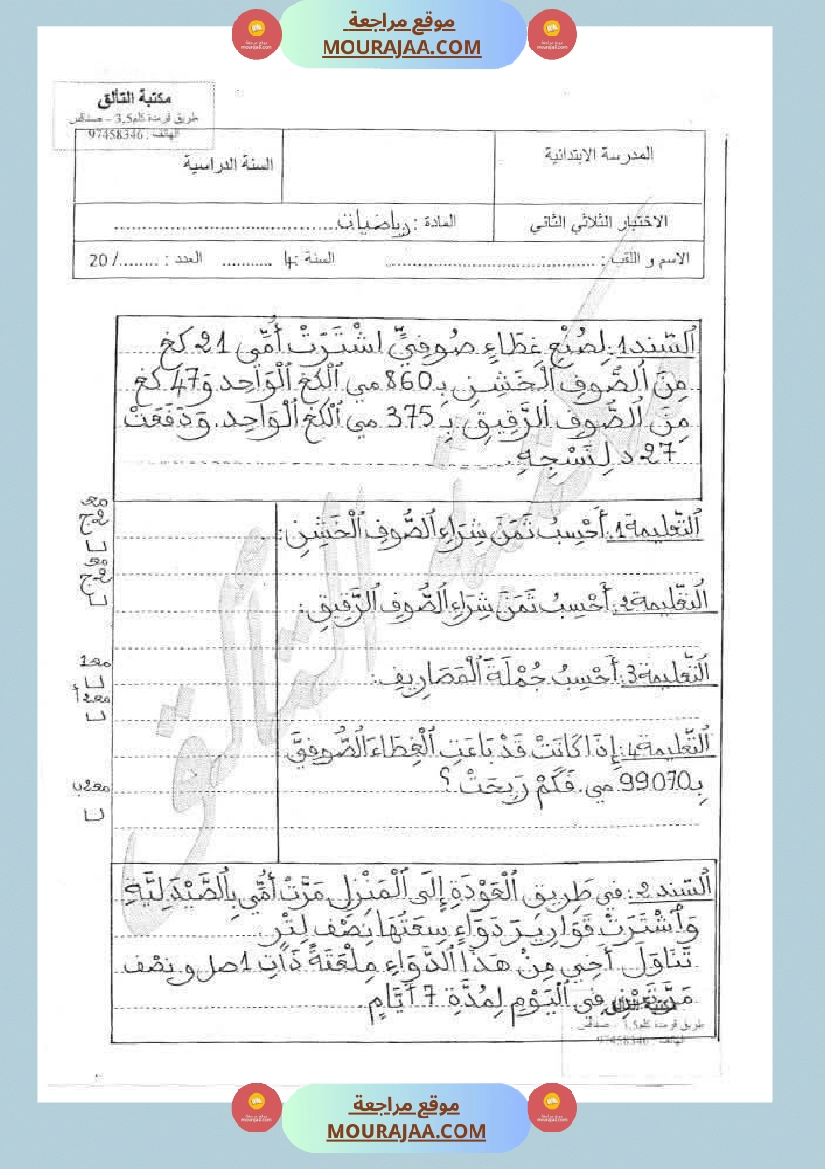 موقع مراجعة
MOURAJAA.COM
مكتبة التألق
طريق قرمدة كلم3,5 - صفاقس
الهاتف : 97458346
المدرسة الابتدائية
السنة الدراسية
الاختبار الثلاثي الثاني
المادة : رياضيات
الاسم و اللقب :
السنة : 4
العدد : ......../ 20
اَلسّند1: لِصُنْعِ غِطَاءٍ صُوفِيٍّ اشْتَرَتْ أُمِّي 21 كغ
مِنَ اَلصُّوفِ اَلْخَشِنِ بِـ 860 مي اَلْكغ اَلْوَاحِد وَ 47 كغ
مِنَ اَلصُّوفِ اَلرَّقِيقِ بِـ 375 مي اَلْكغ اَلْوَاحِد. وَ دَفَعَتْ
27 د لِنَسْجِهِ.
اَلتّعليمة1: أَحْسِبُ ثَمَنَ شِرَاءِ اَلصُّوفِ اَلْخَشِنِ:
اَلتّعليمة2: أَحْسِبُ ثَمَنَ شِرَاءِ اَلصُّوفِ اَلرَّقِيقِ:
اَلتّعليمة3: أَحْسِبُ جُمْلَةَ اَلْمَصَارِيفِ:
اَلتّعليمة4: إِذَا كَانَتْ قَدْ بَاعَتِ اَلْغِطَاءَ اَلصُّوفِيَّ
بِـ 99070 مي. فَكَمْ رَبِحَتْ ؟
مع1
مع2ب
اَلسّند2: في طَرِيقِ اَلْعَوْدَةِ إِلَى اَلْمَنْزِلِ مَرَّتْ أُمِّي بِالصَّيْدَلِيَّةِ
وَ اَشْتَرَتْ قَوَارِيرَ دَوَاءٍ سِعَتُهَا نِصْف لِتْرٍ.
تَنَاوَلَ أَخِي مِنْ هَذَا اَلدَّوَاءِ مِلْعَقَةً ذَاتِ 1صل و نِصْف
مَرَّتَيْنِ فِي اَلْيَوْمِ لِمُدَّةِ 7 أَيَّامٍ.
طريق قرمدة كلم3,5 - صفاقس
الهاتف : 97458346
موقع مراجعة
MOURAJAA.COM